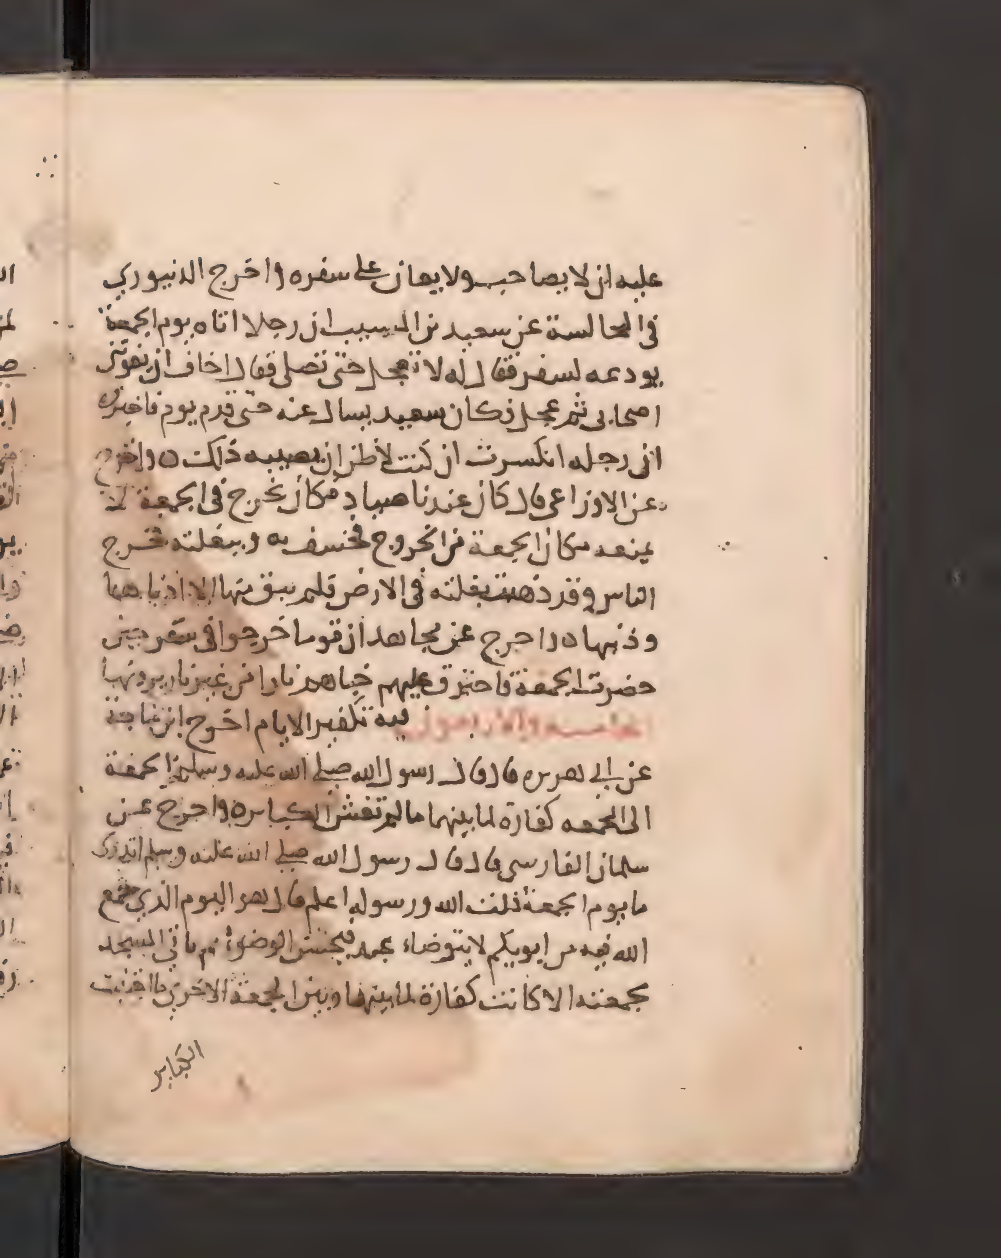 عليه ان لا يصاحب ولا يعان على سفره واخرج الدنيوري
في المجالسة عن سعيد بن المسيب ان رجلا اتاه يوم الجمعة
يودعه لسفر فقال له لا تعجل حتى تصلي فقال اخاف ان يفوتني
اصحابي ثم عجل فكان سعيد يسال عنه حتى قدم يوم فاخبره
ان رجله انكسرت ان كنت لأظن ان يصيبه ذلك ه واخرج
عن الاوزاعي قال كان عندنا صياد فكان يخرج في الجمعة لا
يمنعه مكان الجمعة من الخروج فخسف به وببغلته فخرج
الناس وقد ذهبت بغلته في الارض فلم يبق منها الا اذناها
وذنبها ه واخرج عن مجاهد ان قوما خرجوا في سفر حين
حضرت الجمعة فاحترق عليهم خباهم نارا من غير نار يرونها
الخامسه والاربعون فيه تكفير الايام اخرج ابن ماجة
عن ابي هريره قال قال رسول الله صلى الله عليه وسلم الجمعة
الى الجمعه كفارة لما بينهما ما لم تغش الكبايره واخرج عن
سلمان الفارسي قال قال رسول الله صلى الله عليه وسلم اتدري
ما يوم الجمعة قلت الله ورسوله اعلم قال هو اليوم الذي جمع
الله فيه بين ابويكم لا يتوضاء عبد فيحسن الوضوء ثم ياتي المسجد
لجمعته الا كانت كفارة لما بينها وبين الجمعة الاخرى ما اجتنبت
الكباير